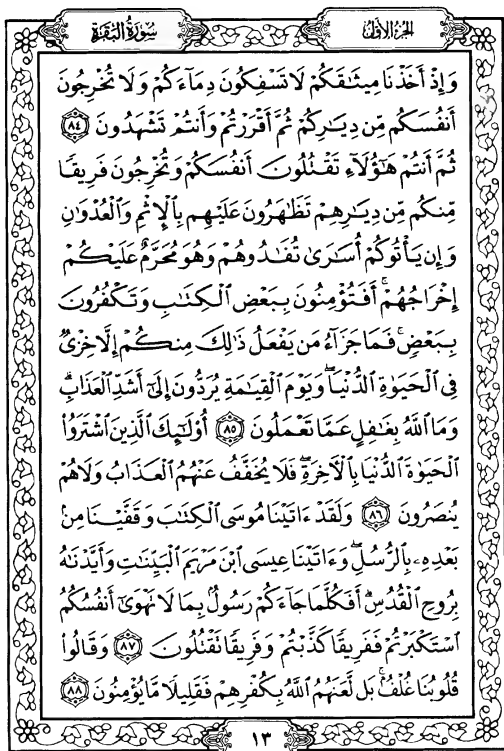 سُورَةُ البَقَرَةِ
الجُزءُ الأوّل
وَإِذْ أَخَذْنَا مِيثَٰقَكُمْ لَا تَسْفِكُونَ دِمَآءَكُمْ وَلَا تُخْرِجُونَ
أَنفُسَكُم مِّن دِيَٰرِكُمْ ثُمَّ أَقْرَرْتُمْ وَأَنتُمْ تَشْهَدُونَ ٨٤
ثُمَّ أَنتُمْ هَٰٓؤُلَآءِ تَقْتُلُونَ أَنفُسَكُمْ وَتُخْرِجُونَ فَرِيقًا
مِّنكُم مِّن دِيَٰرِهِمْ تَظَٰهَرُونَ عَلَيْهِم بِالْإِثْمِ وَالْعُدْوَٰنِ
وَإِن يَأْتُوكُمْ أُسَٰرَىٰ تُفَٰدُوهُمْ وَهُوَ مُحَرَّمٌ عَلَيْكُمْ
إِخْرَاجُهُمْ ۚ أَفَتُؤْمِنُونَ بِبَعْضِ الْكِتَٰبِ وَتَكْفُرُونَ
بِبَعْضٍ ۚ فَمَا جَزَآءُ مَن يَفْعَلُ ذَٰلِكَ مِنكُمْ إِلَّا خِزْىٌ
فِى الْحَيَوٰةِ الدُّنْيَا ۖ وَيَوْمَ الْقِيَٰمَةِ يُرَدُّونَ إِلَىٰٓ أَشَدِّ الْعَذَابِ ۗ
وَمَا اللَّهُ بِغَٰفِلٍ عَمَّا تَعْمَلُونَ ٨٥ أُو۟لَٰٓئِكَ الَّذِينَ اشْتَرَوُا۟
الْحَيَوٰةَ الدُّنْيَا بِالْءَاخِرَةِ ۖ فَلَا يُخَفَّفُ عَنْهُمُ الْعَذَابُ وَلَا هُمْ
يُنصَرُونَ ٨٦ وَلَقَدْ ءَاتَيْنَا مُوسَى الْكِتَٰبَ وَقَفَّيْنَا مِنۢ
بَعْدِهِۦ بِالرُّسُلِ ۖ وَءَاتَيْنَا عِيسَى ابْنَ مَرْيَمَ الْبَيِّنَٰتِ وَأَيَّدْنَٰهُ
بِرُوحِ الْقُدُسِ ۗ أَفَكُلَّمَا جَآءَكُمْ رَسُولٌۢ بِمَا لَا تَهْوَىٰٓ أَنفُسُكُمُ
اسْتَكْبَرْتُمْ فَفَرِيقًا كَذَّبْتُمْ وَفَرِيقًا تَقْتُلُونَ ٨٧ وَقَالُوا۟
قُلُوبُنَا غُلْفٌۢ ۚ بَل لَّعَنَهُمُ اللَّهُ بِكُفْرِهِمْ فَقَلِيلًا مَّا يُؤْمِنُونَ ٨٨
١٣